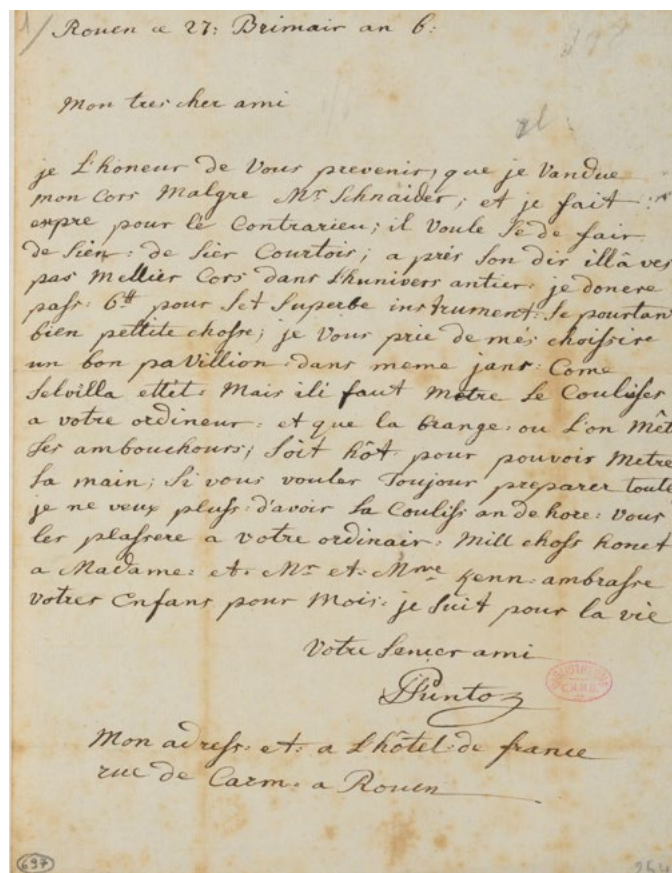 1/ Rouen ce 27: Brimair an 6:
Mon tres cher ami
je L'honeur de Vous prevenir, que je Vandue
mon Cors Malgre Mr Schnaider; et je fait
expre pour le Contrarieu; il Voule Sè de fair
de Sien: de Sier Courtois; a prés Son dir illâ ves
pas Mellier Cors dans Lhunivers antier: je donere
pass: 6tt pour Set Superbe instrument: Se pourtan
bien pettite chosse; je Vous prie de més choissire
un bon paVillion dans meme jans: Come
Selvilla ettèt: Mais ili faut Metre Le Coulisses
a votre ordineur: et que la brange: ou L'on Mêt
Ses ambouchours; Soit hôt pour pouvois Metre
La main; Si vous vouler Toujour preparer toute
je ne veux pluss: d'avoir La Couliss an de hore: Vous
les plassere a votre ordinair: Mill choss honet
a Madame: et: Mr et: Mme Kenn: ambrasse
votres Enfans pour Mois: je Suit pour la vie
Votre Sencer ami
Punto
Mon adress: et: a L'hôtel: de france
rue de Carm: a Rouen
697
254